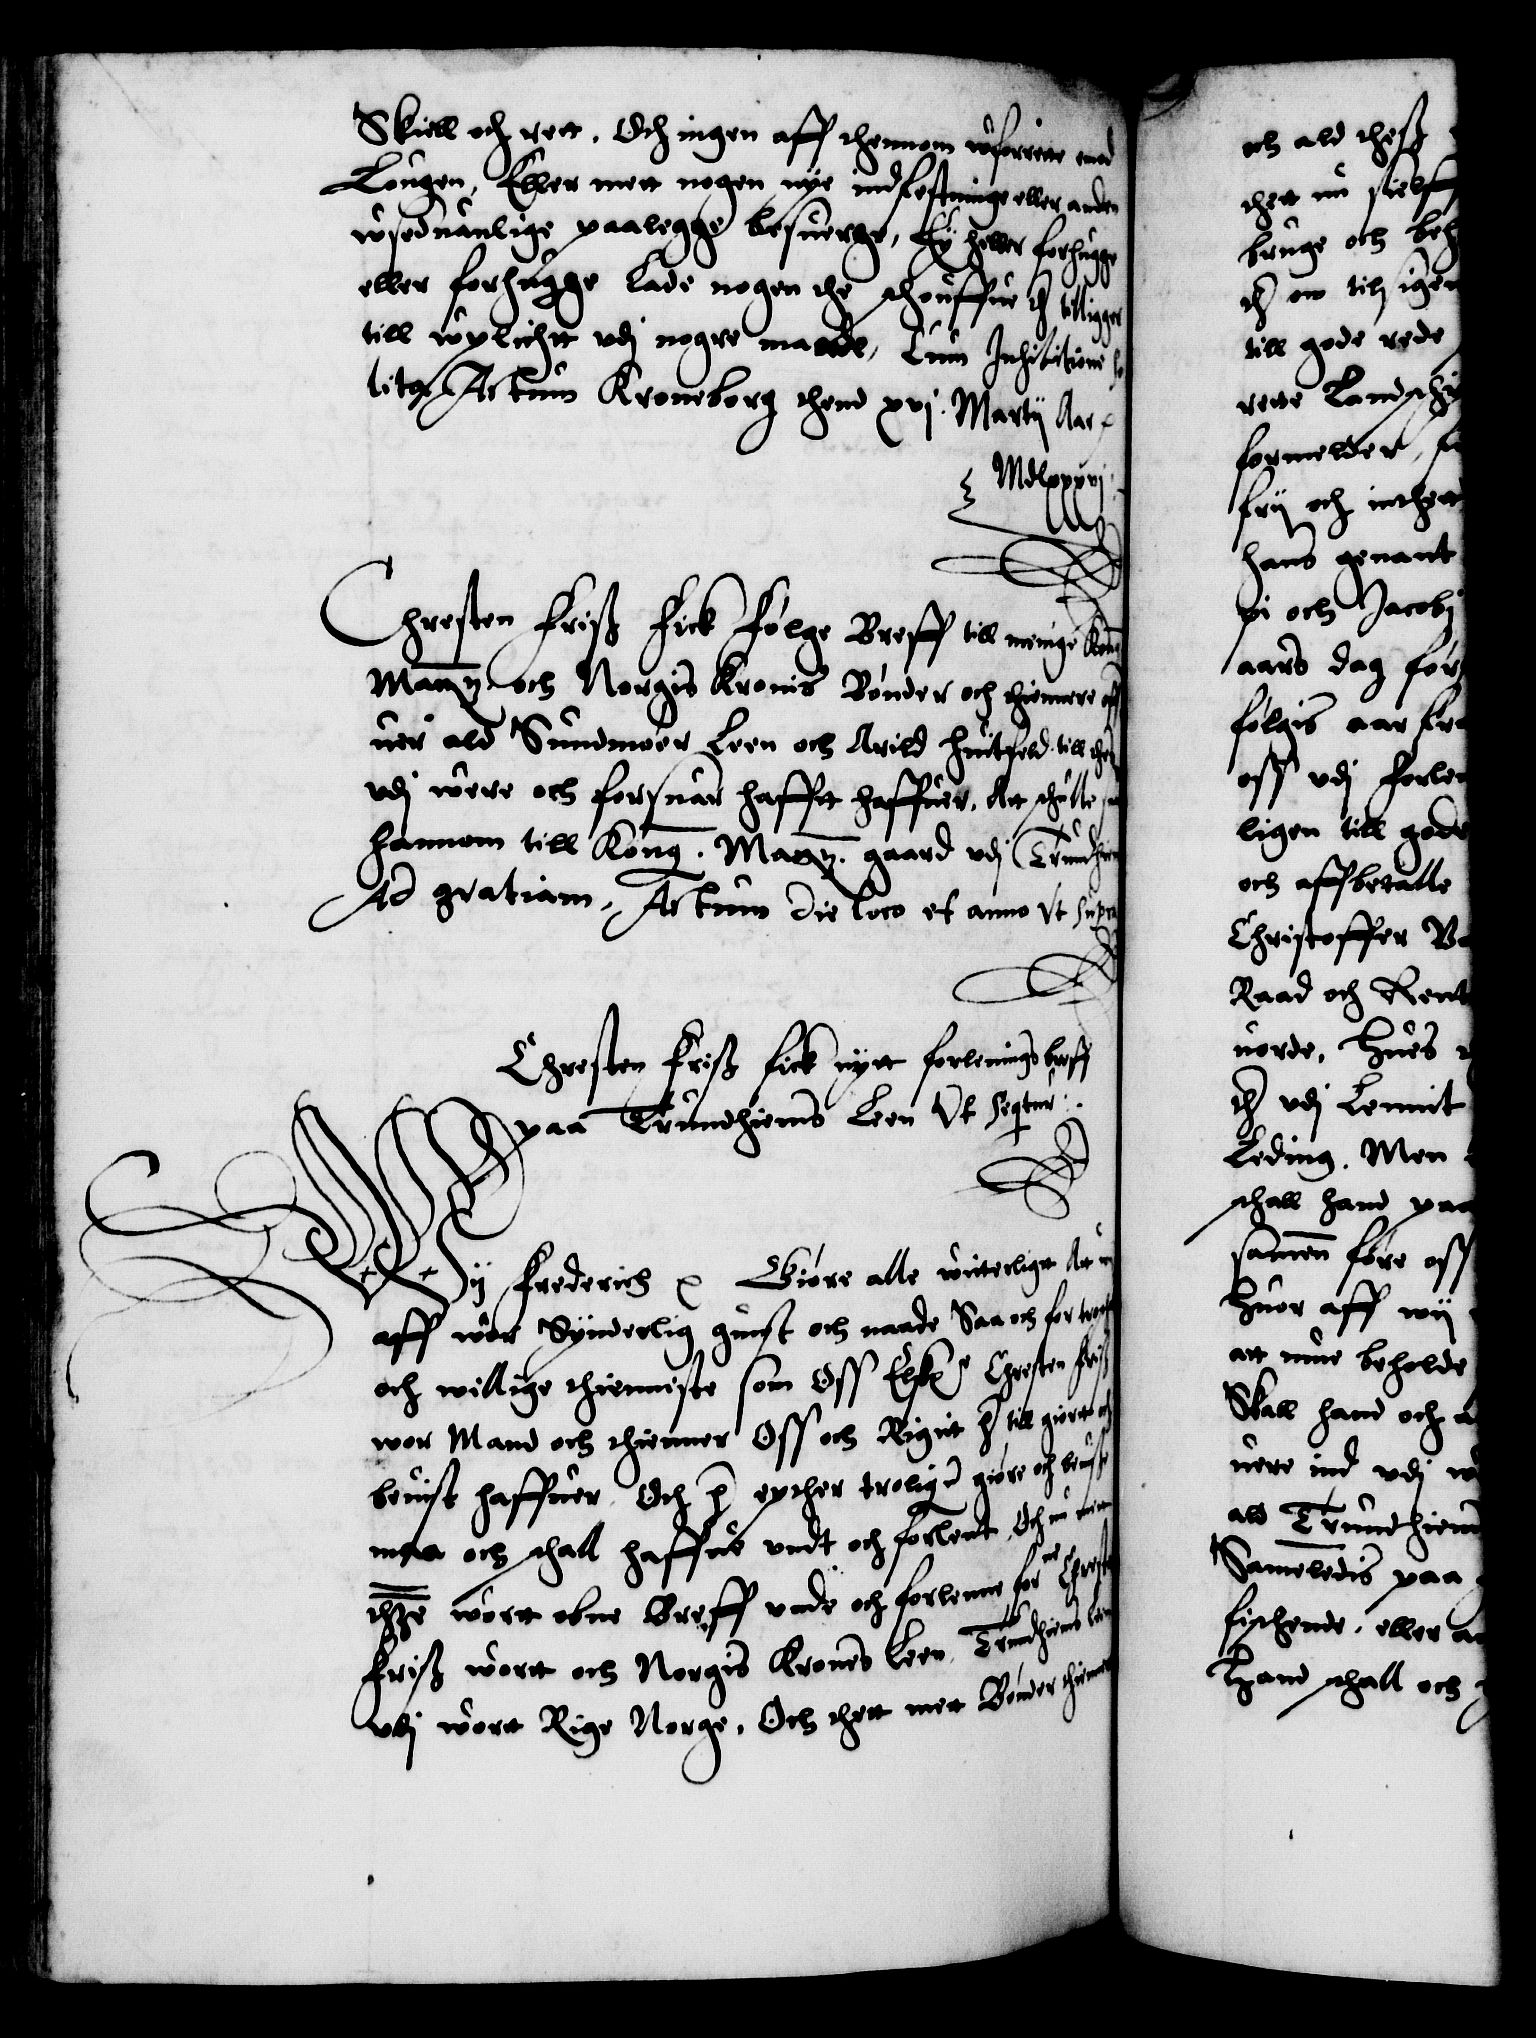 Skiell och rett. Och ingen aff thennom wforrette emod
Lougen, Eller mett nogen nye indfestninge eller anden
wseduanlige paalegge besuerge, Ey heller forhugge
eller forhugge lade nogen the schouffue ther tilligger
till wplicht vdj nogre maade, Cum Inhibitione so
lita Actum Kroneborg thend xvj. Martij Aar
Mdlxxxvj
Chresten Friß Fick Følge Breff till menige Kong
Maytz och Norgis Kronis Bønder och thienere off
uer ald Sundmøer Leen och Arild Huitfeld till then
vdj were och forsuar hafft haffuer. Att schulle
hannom till Kong. Maytz. gaard vdj Trundhiem
Ad gratiam. Actum die loco et anno Vt supra
Chresten Friß fick nytt forlenings breff
paa Trundhiems Leen Vt seqtur
Wij Frederich Giøre alle witerligt Att wij
aff wor Synderlig gunst och naade Saa och for tro
och willige thienniste som Oss Elsk Chresten Friß
wor Mand och thienner Oss och Rigit her till giort och
beuist haffuer Och her epther troligen giøre och beuise
maa och schall haffue vndt och forlent, Och nu mett
thze wortt obne Breff vnde och forlenne forne Chresten
Friß wortt och Norgis Krones Leen Trundhiems Leen
vdj wortt Rige Norge, Och thett mett Bønder thienere
och ald theß
thett nu sielff
bruge och beh
ther om till igen
till gode rede
rette Landschy
formelder,
frij och
hans genant
pi och Jacobj
aars dag for
følgis aar fra
oss vdj forlen
ligen till gode
och affbetalle
Christoffer
Raad och Rent
uorde, Hues
ther vdj Lennit
Leding. Men
schall hand paa
samenn føre oss
Huor aff wij
att mue beholde
Skall hand och
uere ind vdj
ald Trundhiems
Sameledis paa
fischende, eller
Hand schall och